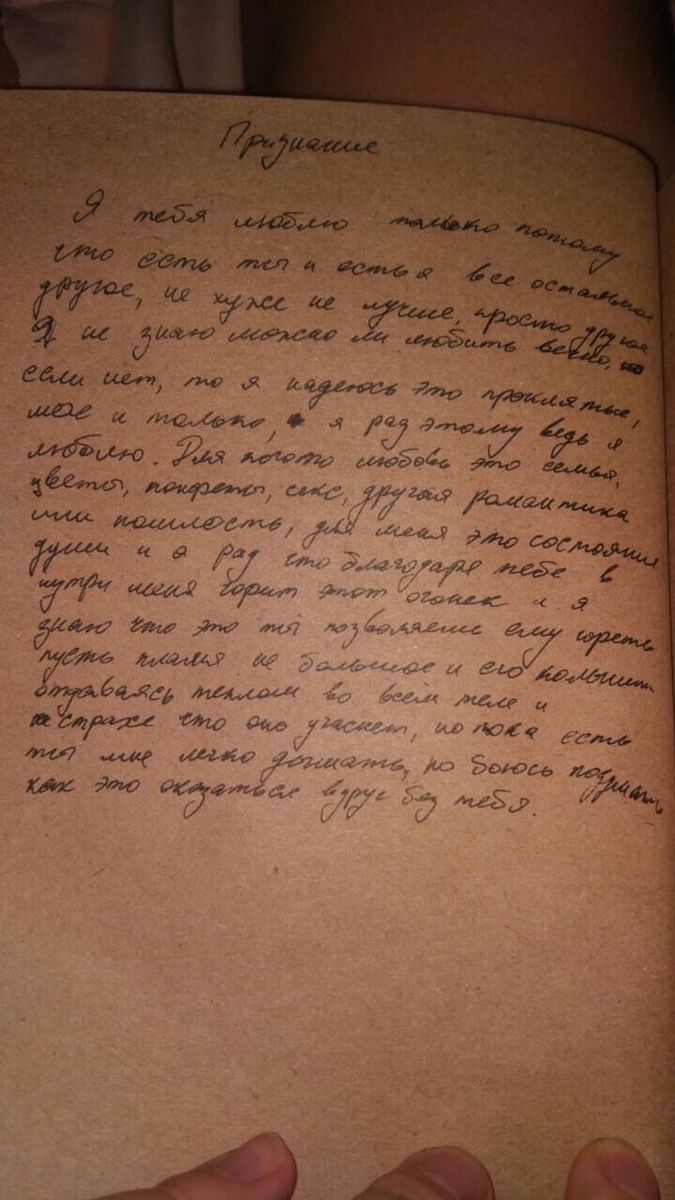 Признание
Я тебя люблю только потому
что есть ты и есть я все остальное
другое, не хуже не лучше, просто другое
Я не знаю можно ли любить вечно, но
если нет, то я надеюсь это проклятье,
мое и только, я рад этому ведь я
люблю. Для кого то любовь это семья,
цветы, конфеты, секс, другая романтика
или пошлость, для меня это состояние
души и я рад что благодаря тебе в
нутри меня горит этот огонек и я
знаю что это ты позволяешь ему гореть
пусть пламя не большое и его
отдаваясь теплом во всем теле и
страхе что оно угаснет, но пока есть
ты мне легко дышать, но боюсь
как это оказаться вдруг без тебя.